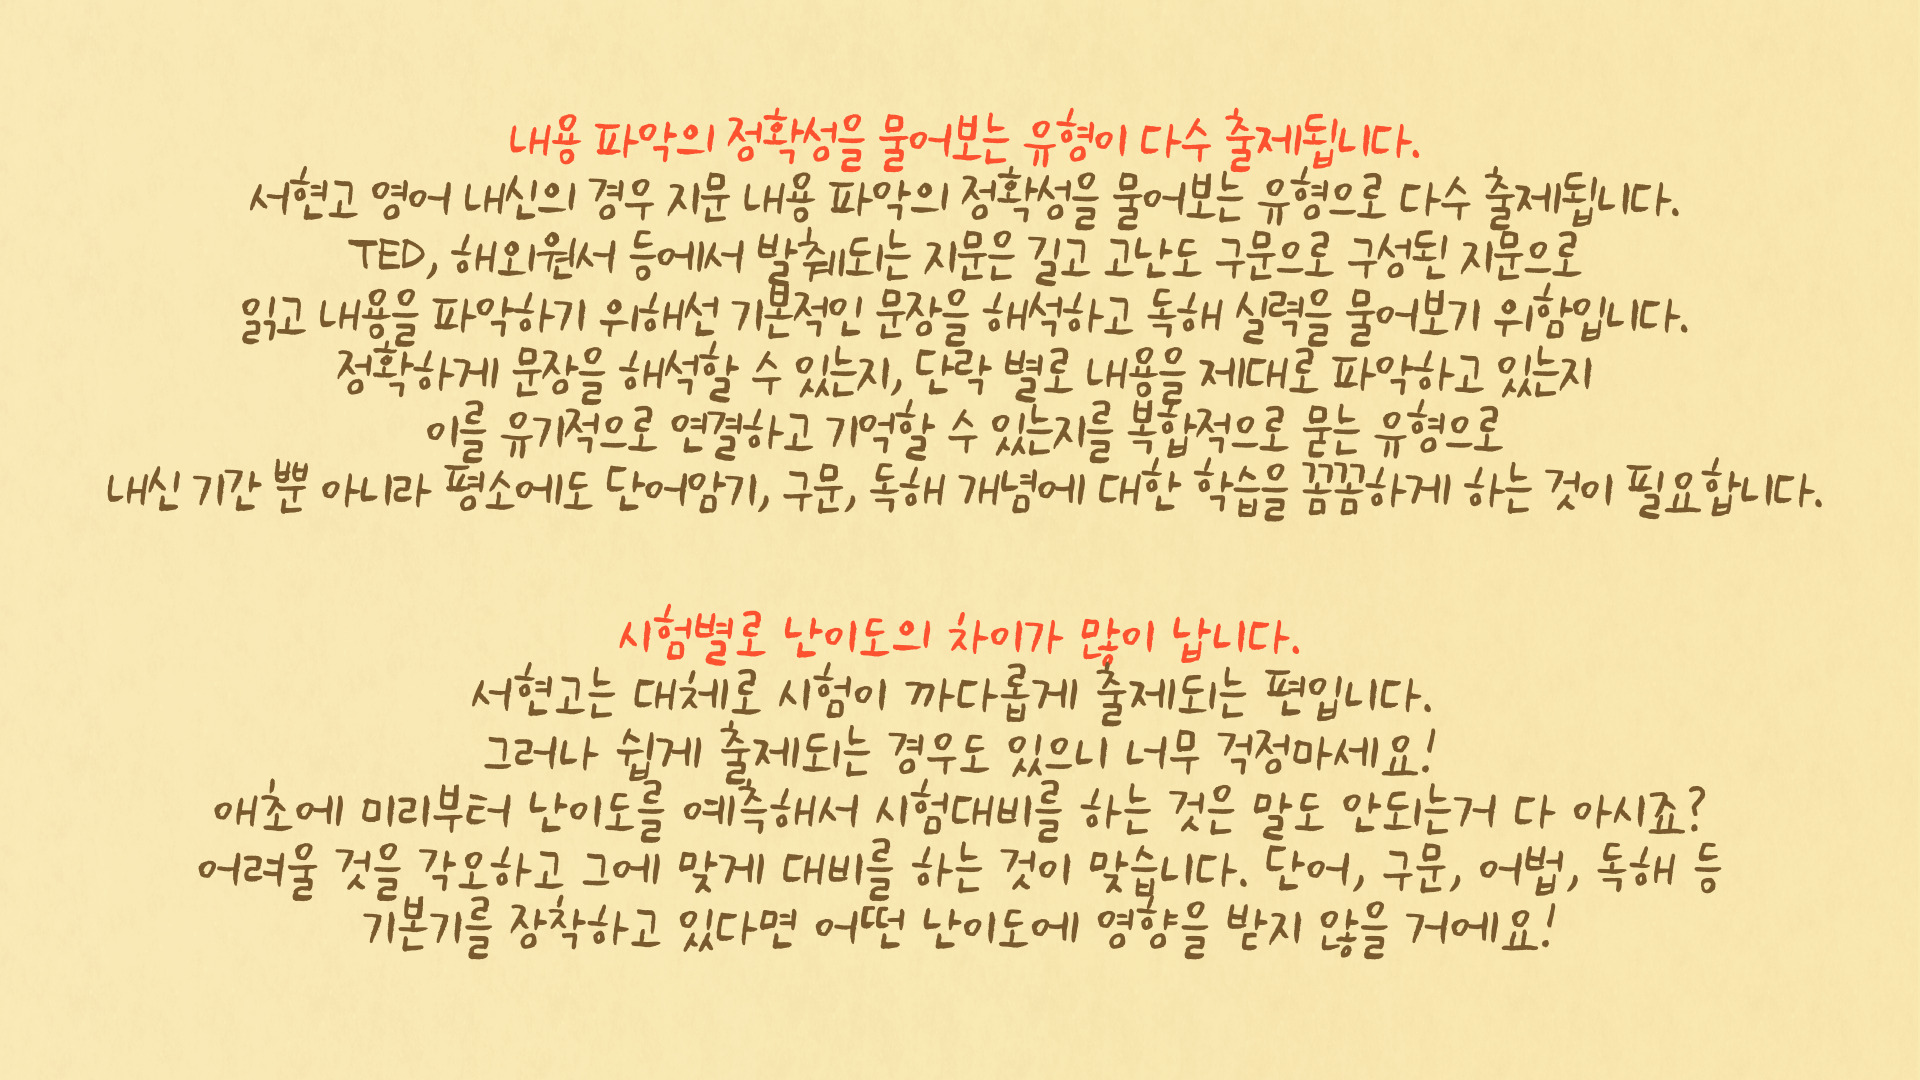 내용 파악의 정확성을 물어보는 유형이 다수 출제됩니다.
서현고 영어 내신의 경우 지문 내용 파악의 정확성을 물어보는 유형으로 다수 출제됩니다.
TED, 해외원서 등에서 발췌되는 지문은 길고 고난도 구문으로 구성된 지문으로
읽고 내용을 파악하기 위해선 기본적인 문장을 해석하고 독해 실력을 물어보기 위함입니다.
정확하게 문장을 해석할 수 있는지, 단락 별로 내용을 제대로 파악하고 있는지
이를 유기적으로 연결하고 기억할 수 있는지를 복합적으로 묻는 유형으로
내신 기간 뿐 아니라 평소에도 단어암기, 구문, 독해 개념에 대한 학습을 꼼꼼하게 하는 것이 필요합니다.
시험별로 난이도의 차이가 많이 납니다.
서현고는 대체로 시험이 까다롭게 출제되는 편입니다.
그러나 쉽게 출제되는 경우도 있으니 너무 걱정마세요!
애초에 미리부터 난이도를 예측해서 시험대비를 하는 것은 말도 안되는거 다 아시죠?
어려울 것을 각오하고 그에 맞게 대비를 하는 것이 맞습니다. 단어, 구문, 어법, 독해 등
기본기를 장착하고 있다면 어떤 난이도에 영향을 받지 않을 거에요!